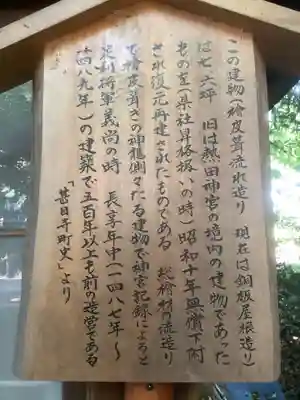 この建物(檜皮葺流れ造り 現在は銅板屋根造り)
は七二坪 旧は熱田神宮の境内の建物であった
ものを(県社昇格 の時)昭和十年無償下附
され復元再建されたものである 総檜材の流造り
で檜皮葺きの神 々たる建物で神宮記録によると
足利将軍義尚の時 長享年中(一四八七年〜
一四八九年)の建築で五百年以上も前の造営である
「甚目寺町史」より